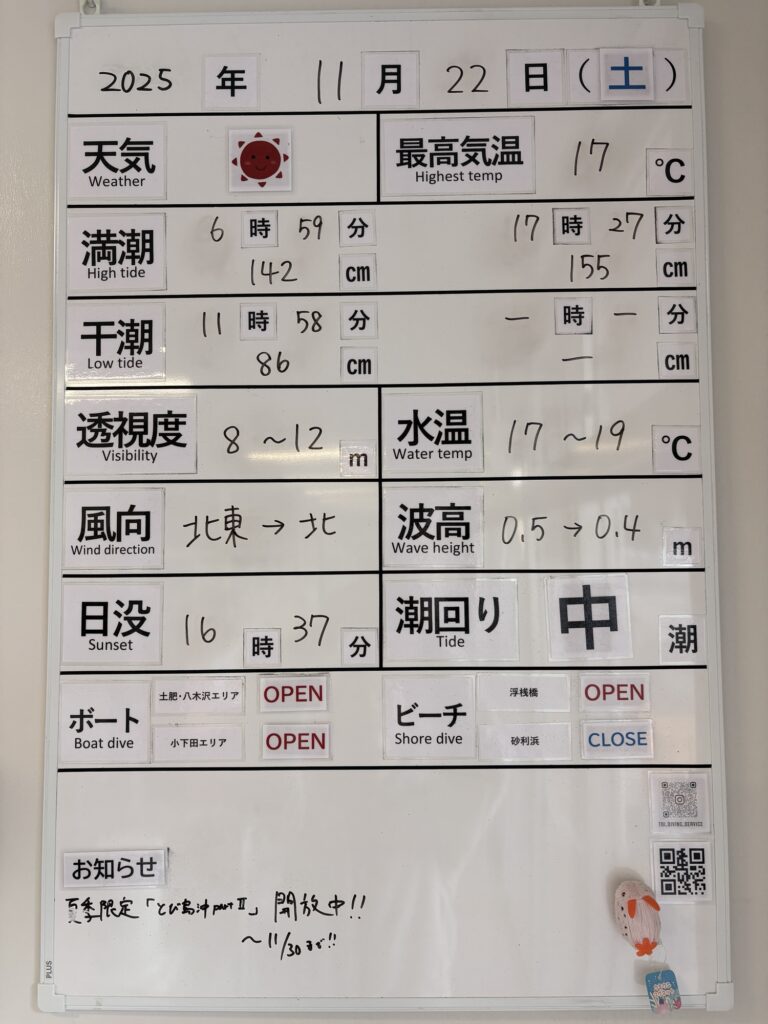 2025 年 11 月 22 日 (土)
天気 Weather
最高気温 Highest temp 17 ℃
満潮 High tide 6 時 59 分 142 cm 17 時 27 分 155 cm
干潮 Low tide 11 時 58 分 86 cm ー 時 ー 分 ー cm
透視度 Visibility 8 ~12 m
水温 Water temp 17 ~19 ℃
風向 Wind direction 北東 → 北
波高 Wave height 0.5 → 0.4 m
日没 Sunset 16 時 37 分
潮回り Tide 中 潮
ボート Boat dive
土肥・八木沢エリア OPEN
小下田エリア OPEN
ビーチ Shore dive
浮桟橋 OPEN
砂利浜 CLOSE
TOI_DIVING_SERVICE
お知らせ
夏季限定「とび島沖 part Ⅱ」開放中!!
~11/30まで!!
PLUS